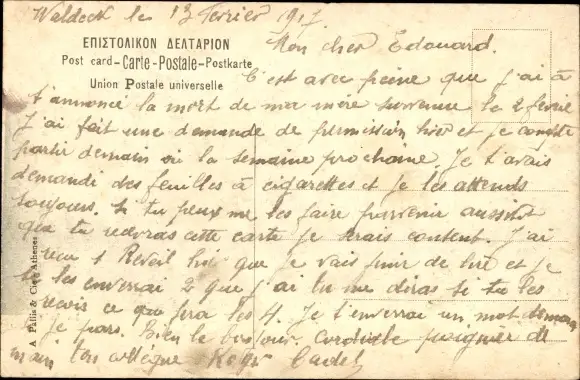 Waldeck le 13 Fevrier 1917
ΕΠΙΣΤΟΛΙΚΟΝ ΔΕΛΤΑΡΙΟΝ
Post card–Carte-Postale–Postkarte
Union Postale universelle
Mon cher Edouard.
C'est avec peine que j'ai à
t'annoncé la mort de ma mère survenue le 2 fevrié
J'ai fait une demande de permission hier et je compte
partir demain où la semaine prochaine. Je t'avais
demandé des feuilles à cigarettes et je les attends
toujours. Si tu peux me les faire parvenir aussitôt
que tu recevras cette carte je serais content. J'ai
recu 1 Reveil que je vais finir de lire et je
te les enverrai 2 que j'ai lu me diras si tu les
recois ce que fera les 4. Je t'enverrai un mot demain
je pars. Bien le bonjour. cordiale poignée de
main ton collègue Roger
A. Pallis & Cie Athènes